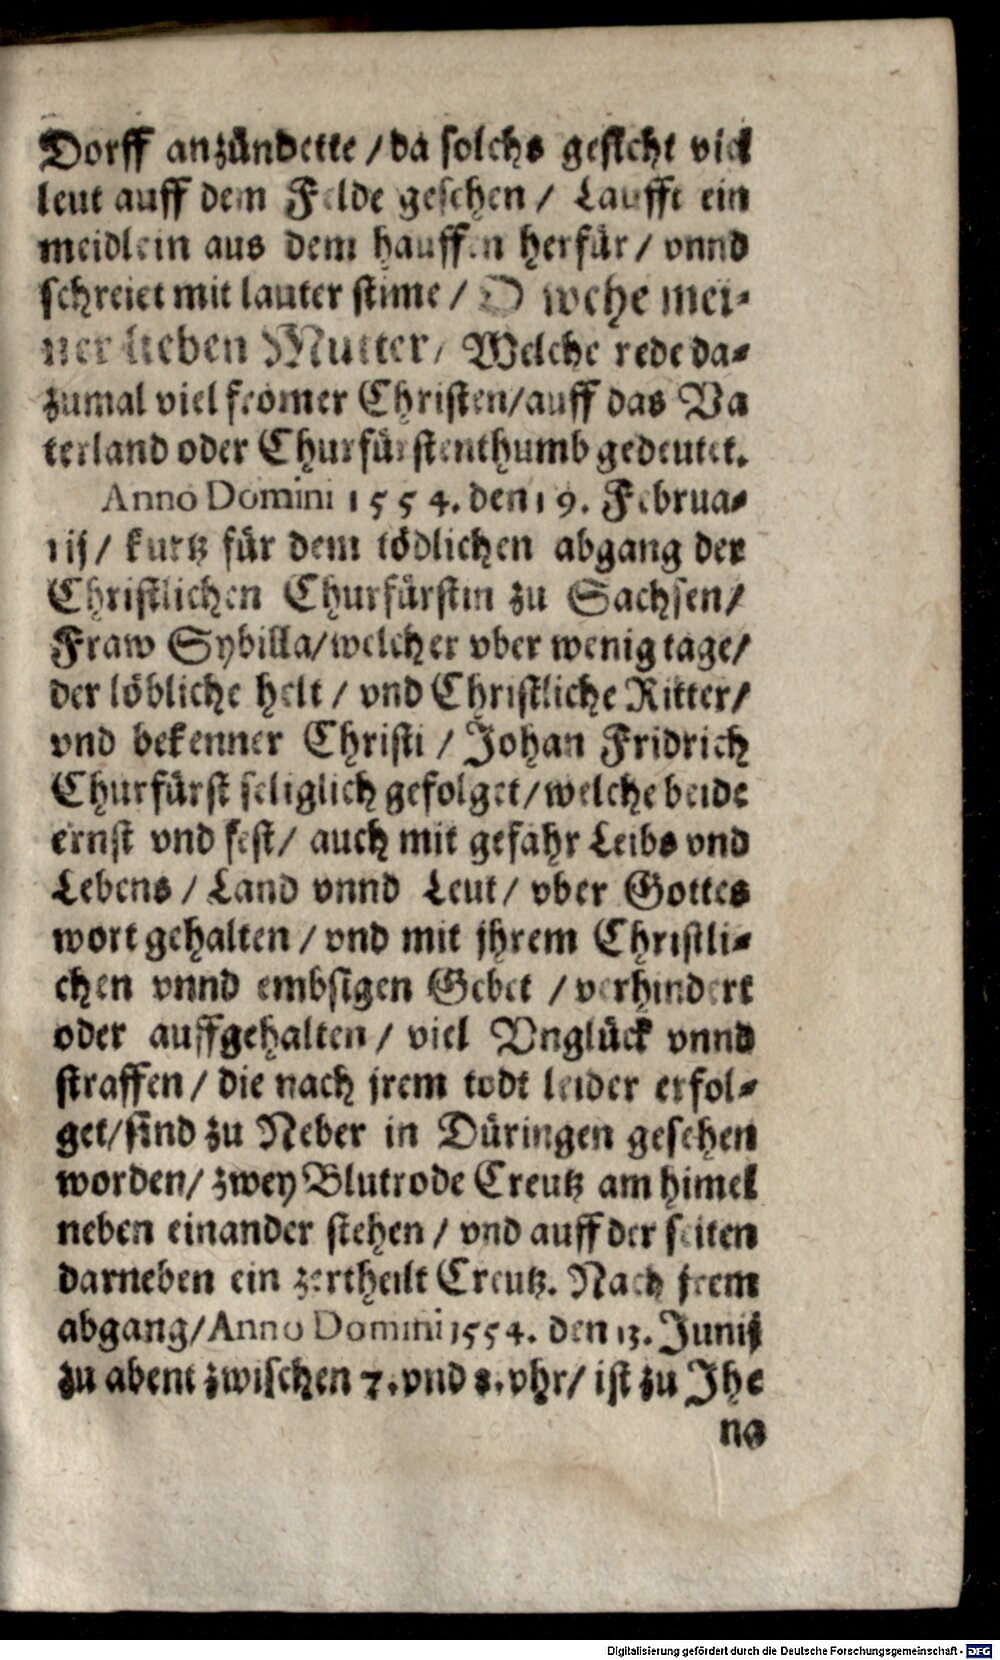 Dorff anzündette / da solchs gesicht viel
leut auff dem Felde gesehen / Laufft ein
meidlein aus dem hauffen herfür / vnnd
schreiet mit lauter stime / O wehe mei-
ner lieben Mutter / Welche rede da-
zumal viel fromer Christen / auff das Va
terland oder Churfürstenthumb gedeutet.
Anno Domini 1554. den 19. Februa-
rij / kurtz für dem tödlichen abgang der
Christlichen Churfürstin zu Sachsen /
Fraw Sybilla / welcher vber wenig tage /
der löbliche helt / vnd Christliche Ritter /
vnd bekenner Christi / Johan Fridrich
Churfürst seliglich gefolget / welche beide
ernst vnd fest / auch mit gefahr Leibs vnd
Lebens / Land vnnd Leut / vber Gottes
wort gehalten / vnd mit jhrem Christli-
chen vnnd embsigen Gebet / verhindert
oder auffgehalten / viel Vnglück vnnd
straffen / die nach jrem todt leider erfol-
get / sind zu Neber in Düringen gesehen
worden / zwey Blutrode Creutz am himel
neben einander stehen / vnd auff der seiten
darneben ein zertheilt Creutz. Nach jrem
abgang / Anno Domini 1554. den 13. Junij
zu abent zwischen 7. vnd 8. vhr / ist zu Jhe
na
Digitalisierung gefördert durch die Deutsche Forschungsgemeinschaft - DFG